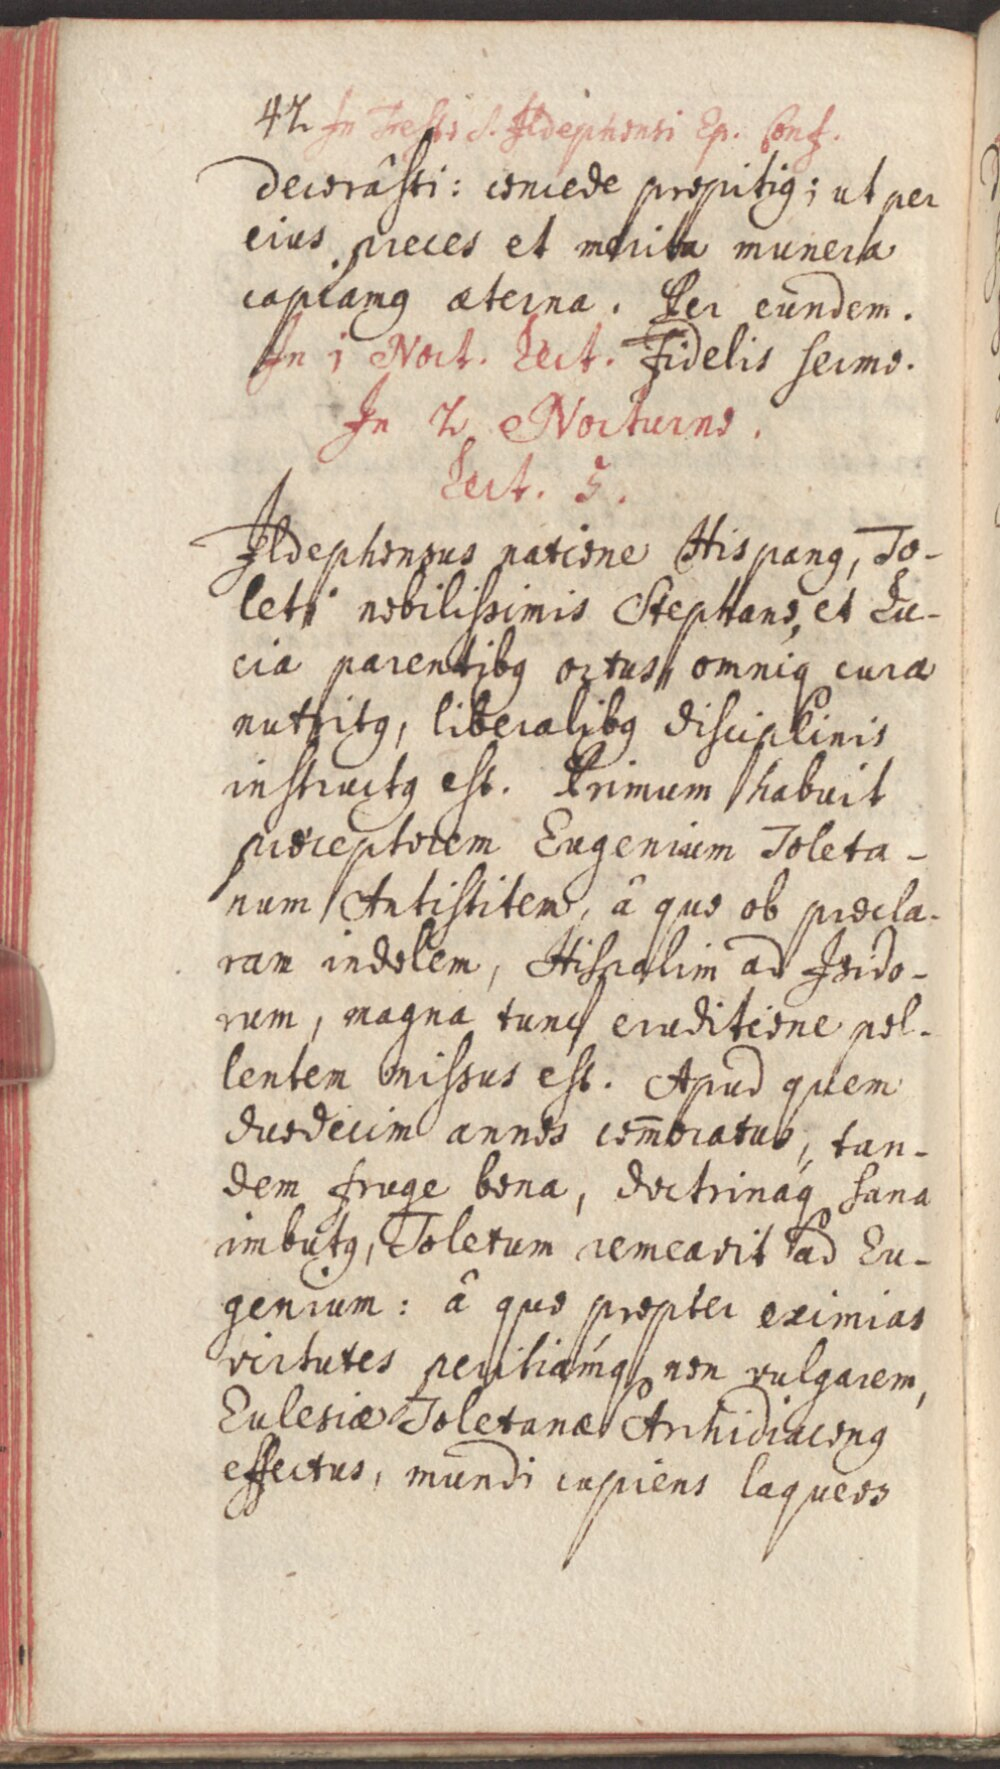 42 In Festo S. Ildephonsi Ep. Conf.
decorâsti: concede propitiꝰ; ut per
eius preces et merita munera
capiamꝰ æterna. Per eundem.
In 1 Noct. Lect. Fidelis sermo.
In 2 Nocturno.
Lect. 5.
Ildephonsus natione Hispanꝰ, To-
leti nobilissimis Stephano, et Lu-
cia parentibꝰ ortus, omniq cura
nutritꝰ, liberalibꝰ disciplinis
instructꝰ est. Primum habuit
præceptorem Eugenium Toleta-
num Antistitem, â quo ob præcla-
ram indolem, Hispalim ad Isido-
rum, magna tunc eruditione pol-
lentem missus est. Apud quem
duodecim annos com̄oratus, tan-
dem fruge bona, doctrinaq́ sana
imbutꝰ, Toletum remeavit ad Eu-
genium: â quo propter eximias
virtutes peritiamq́ non vulgarem,
Eclesiæ Toletanæ Archidiaconꝰ
effectus, mundi cupiens laqueos